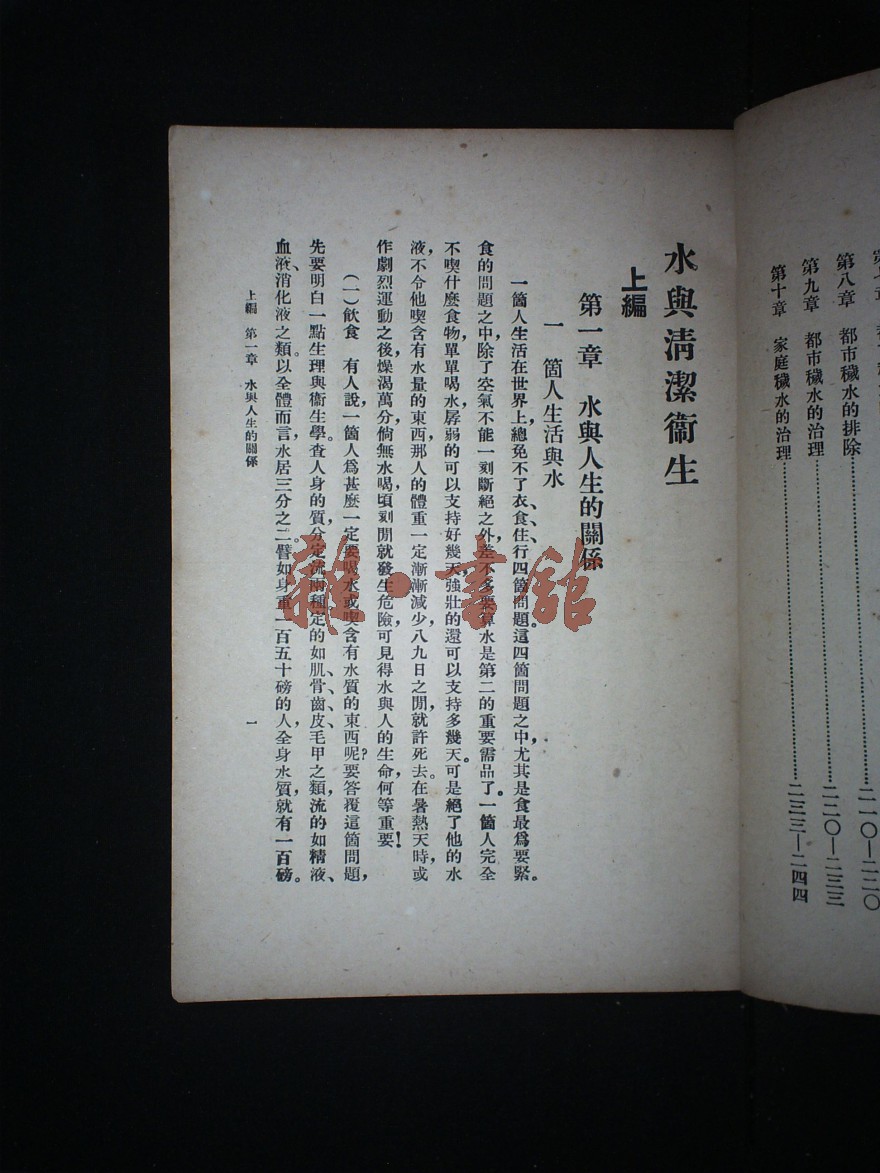 第八章　都市穢水的排除……二一〇—二二〇
第九章　都市穢水的治理……二二〇—二三三
第十章　家庭穢水的治理……二三三—二四四
水與清潔衞生
上編
第一章　水與人生的關係
一　箇人生活與水
一箇人生活在世界上，總免不了衣、食、住、行四箇問題。這四箇問題之中，尤其是食最爲要緊。
食的問題之中，除了空氣不能一刻斷絕之外，差不多要算水是第二的重要需品了。一箇人完全
不喫什麼食物，單單喝水，孱弱的可以支持好幾天，強壯的還可以支持多幾天。可是絕了他的水
液，不令他喫含有水量的東西，那人的體重一定漸漸減少，八九日之閒，就許死去。在暑熱天時，或
作劇烈運動之後，燥渴萬分，倘無水喝，頃刻閒就發生危險，可見得水與人的生命，何等重要！
（一）飲食　有人說，一箇人爲甚麼一定要喝水或喫含有水質的東西呢？要答覆這箇問題，
先要明白一點生理與衞生學。查人身的質，分定流兩種，定的如肌、骨、齒、皮、毛、甲之類，流的如精液、
血液、消化液之類。以全體而言，水居三分之二。譬如身重一百五十磅的人，全身水質，就有一百磅。
上編　第一章　水與人生的關係
一
雜·書館